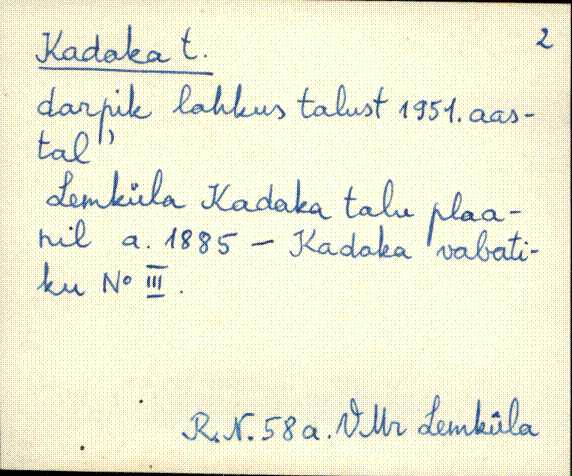 2
Kadaka t.
darpik lahkus talust 1951. aas-
tal"
Lemküla Kadaka talu plaa-
nil a. 1885 - Kadaka vabati-
ku No III.
R.N. 58a. VMr Lemküla